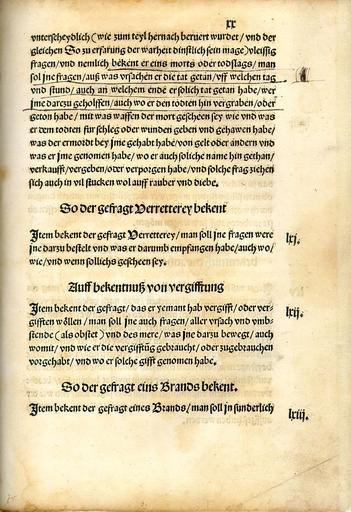 xx
vnterscheydlich (wie zum teyl hernach beruert wurdet / vnd der
gleichen So zu erfarung der warheit dinstlich sein mage) vleissig
fragen / vnd nemlich bekent er eins morts oder todslags / man
sol jne fragen / auß was vrsachen er die tat getan / vff welchen tag
vnd stund / auch an welchem ende er solich tat getan habe / wer
jme darezu geholffen / auch wo er den todten hin vergraben / oder
geton habe / mit was waffen der mort gescheen sey wie vnd was
er dem todten fur schleg oder wunden geben vnd gehawen habe /
was der ermordt bey jme gehabt habe / von gelt oder andern vnd
was er jme genomen habe / wo er auch soliche name hin gethan /
verkaufft / vergeben / oder verporgen habe / vnd solche frag ziehen
sich auch in vil stucken wol auff rauber vnd diebe.
So der gefragt Verretterey bekent
Jtem bekent der gefragt Verretterey / man soll jne fragen were
jne darzu bestelt vnd was er darumb empfangen habe / auch wo /
wie / vnd wenn sollichs gescheen sey.
lxj.
Auff bekentnuß von vergifftung
Jtem bekent der gefragt / das er yemant hab vergifft / oder ver-
gifften wöllen / man soll jne auch fragen / aller vrsach vnd vmb-
stende (als obstet) vnd des mere / was jne darzu bewegt / auch
womit / vnd wie er die vergifftüg gebraucht / oder zugebrauchen
vorgehabt / vnd wo er solche gifft genomen habe.
lxij.
So der gefragt eins Brands bekent.
Jtem bekent der gefragt eines Brands / man soll jn sunderlich
lxiij.